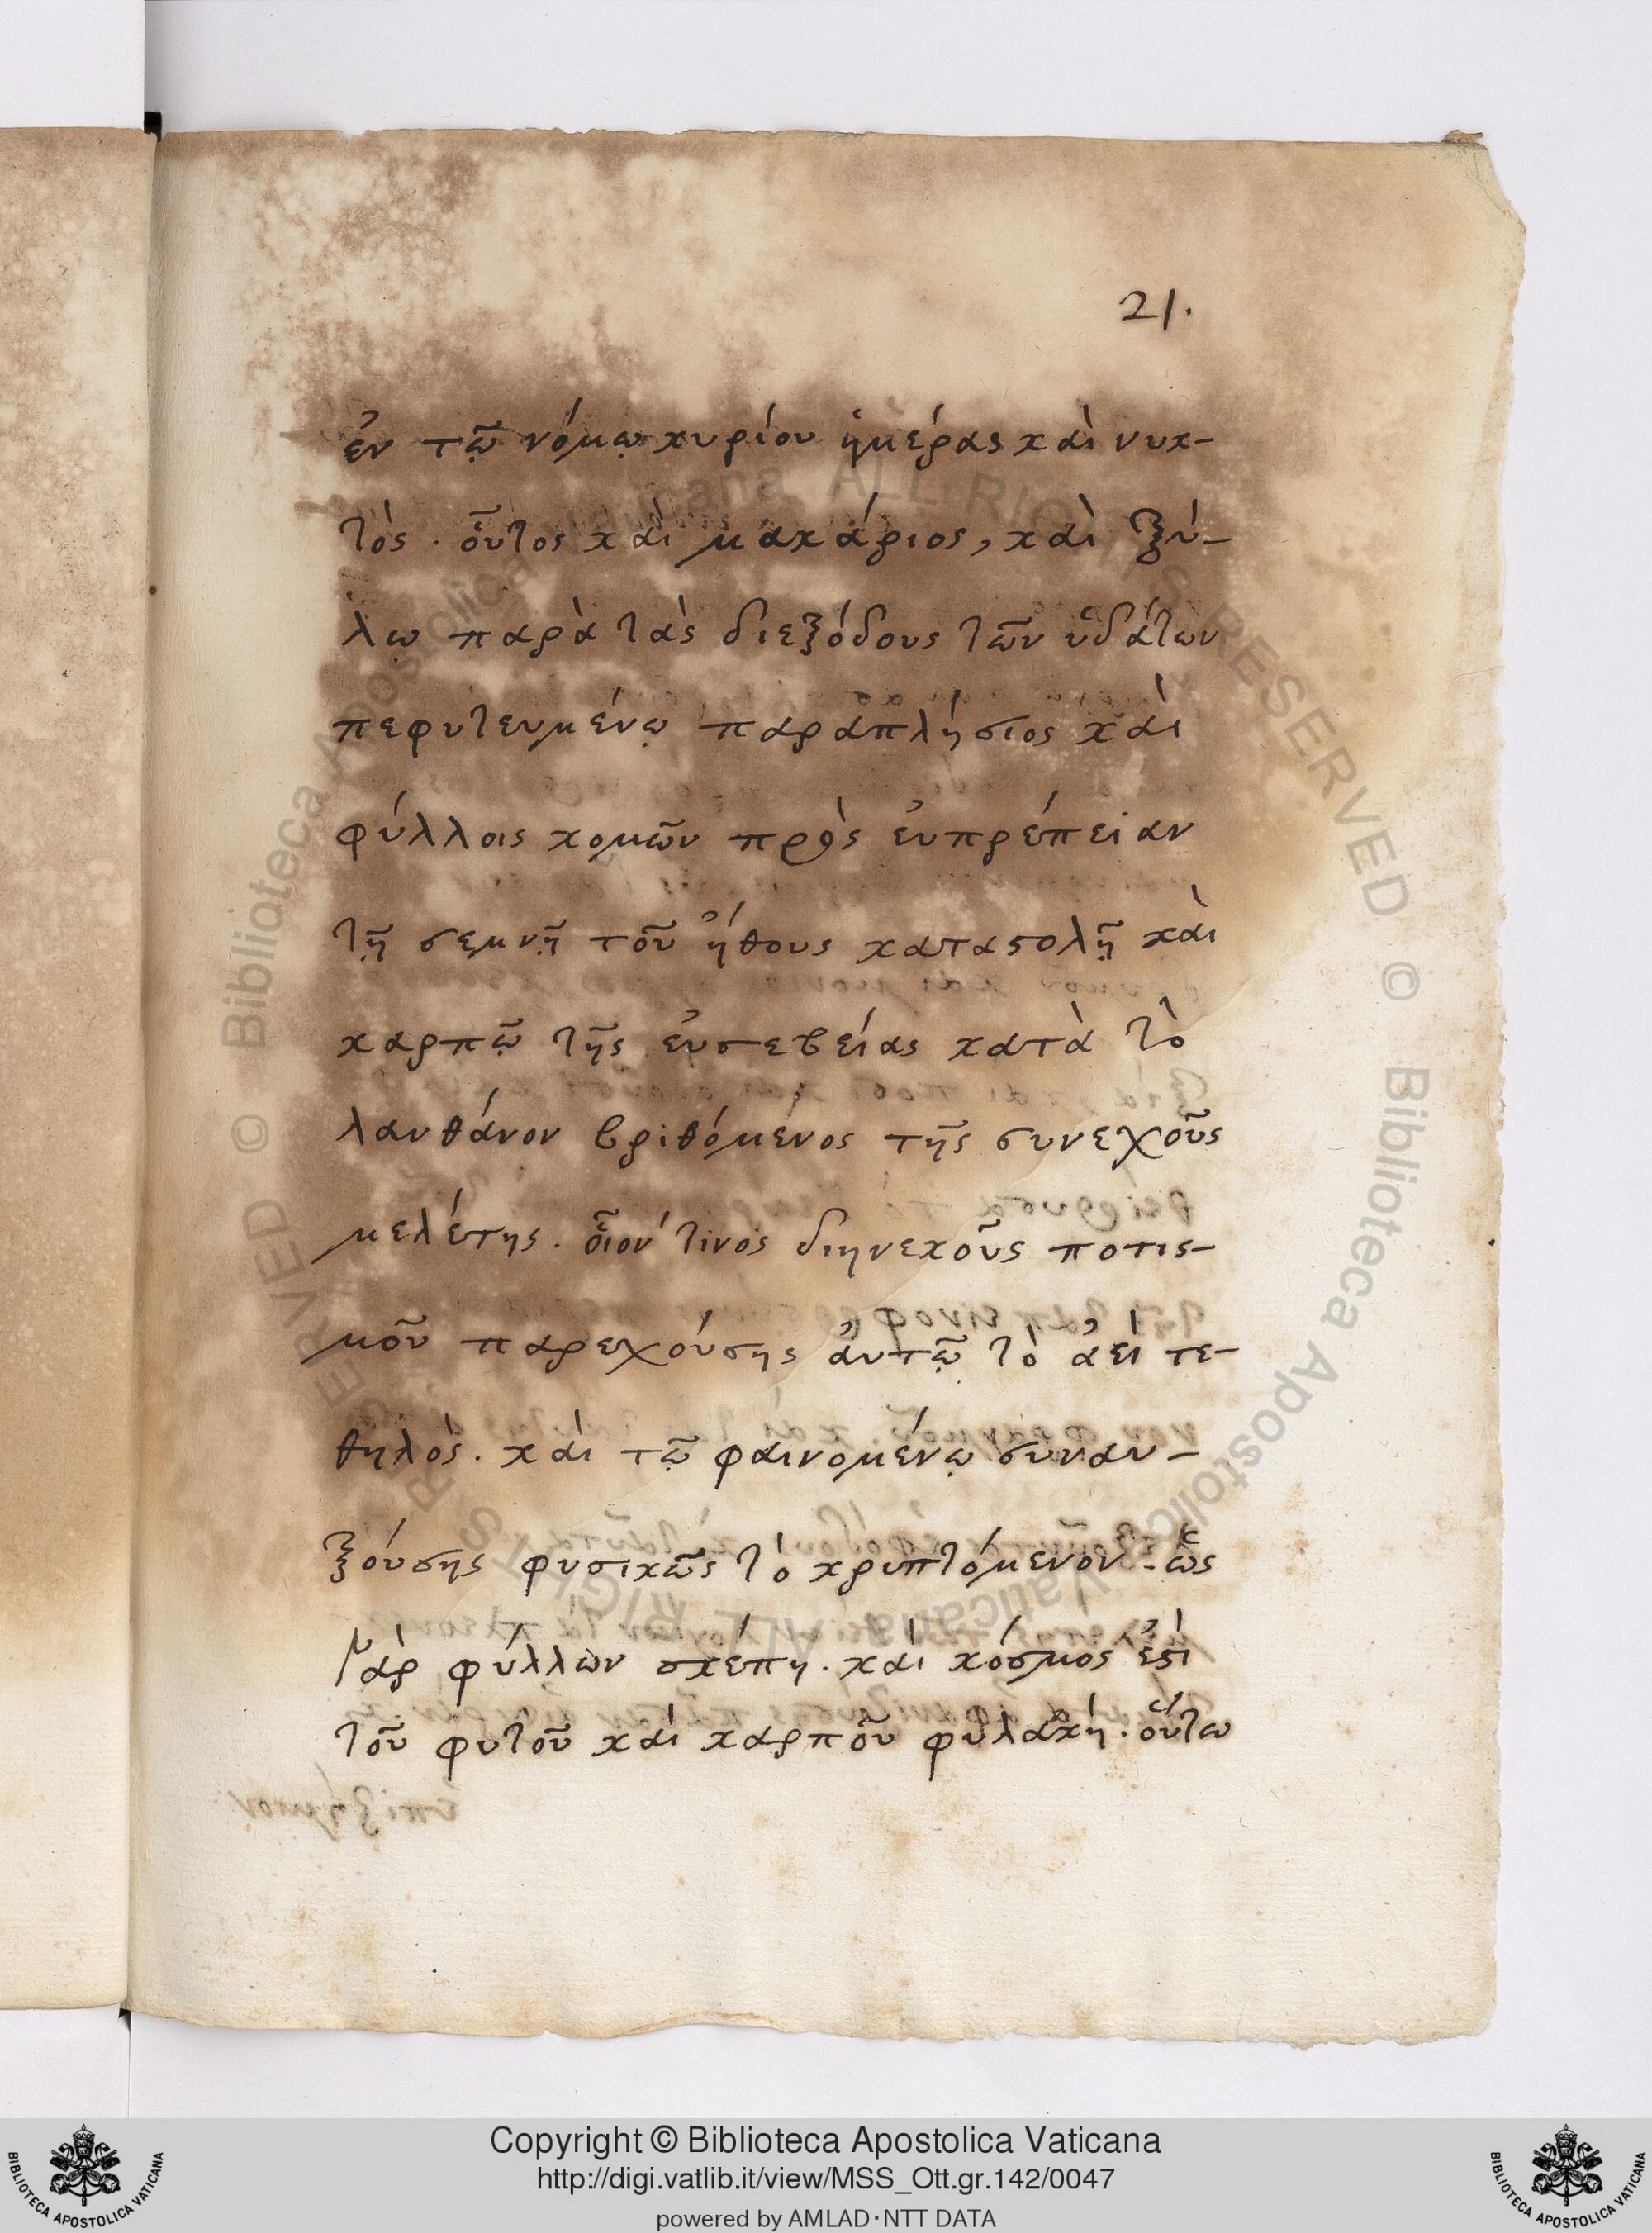 21.
ἐν τῷ νόμῳ κυρίου ἡμέρας καὶ νυκ-
τὸς. οὗτος καὶ μακάριος, καὶ ξύ-
λῳ παρὰ τὰς διεξόδους τῶν ὑδάτων
πεφυτευμένῳ παραπλήσιος καὶ
φύλλοις κομῶν πρὸς εὐπρέπειαν
τῇ σεμνῇ τοῦ ἤθους καταστολῇ καὶ
καρπῷ τῆς εὐσεβείας κατὰ τὸ
λανθάνον βριθόμενος τῆς συνεχοῦς
μελέτης. οἷόν τινος διηνεκοῦς ποτισ-
μοῦ παρεχούσης αὐτῷ τὸ ἀεὶ τε-
θηλὸς. καὶ τῷ φαινομένῳ συναυ-
ξούσης φυσικῶς τὸ κρυπτόμενον. ὡς
γὰρ φύλλων σκέπη. καὶ κόσμος ἐστὶ
τοῦ φυτοῦ καὶ καρποῦ φυλακὴ. οὕτω
Copyright © Biblioteca Apostolica Vaticana
http://digi.vatlib.it/view/MSS_Ott.gr.142/0047
powered by AMLAD·NTT DATA
BIBLIOTECA APOSTOLICA VATICANA
BIBLIOTECA APOSTOLICA VATICANA
© Biblioteca Apostolica Vaticana ALL RIGHTS RESERVED © Biblioteca Apostolica Vaticana ALL RIGHTS RESERVED